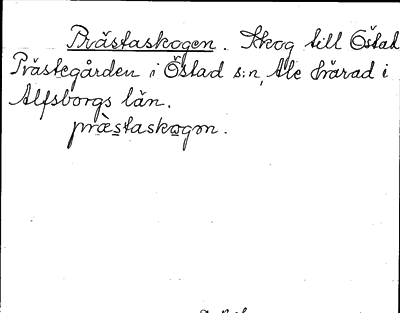 Prästaskogen. Skog till Östad
Prästegården i Östad s:n, Ale härad i
Älfsborgs län.
præ̀staskogon.